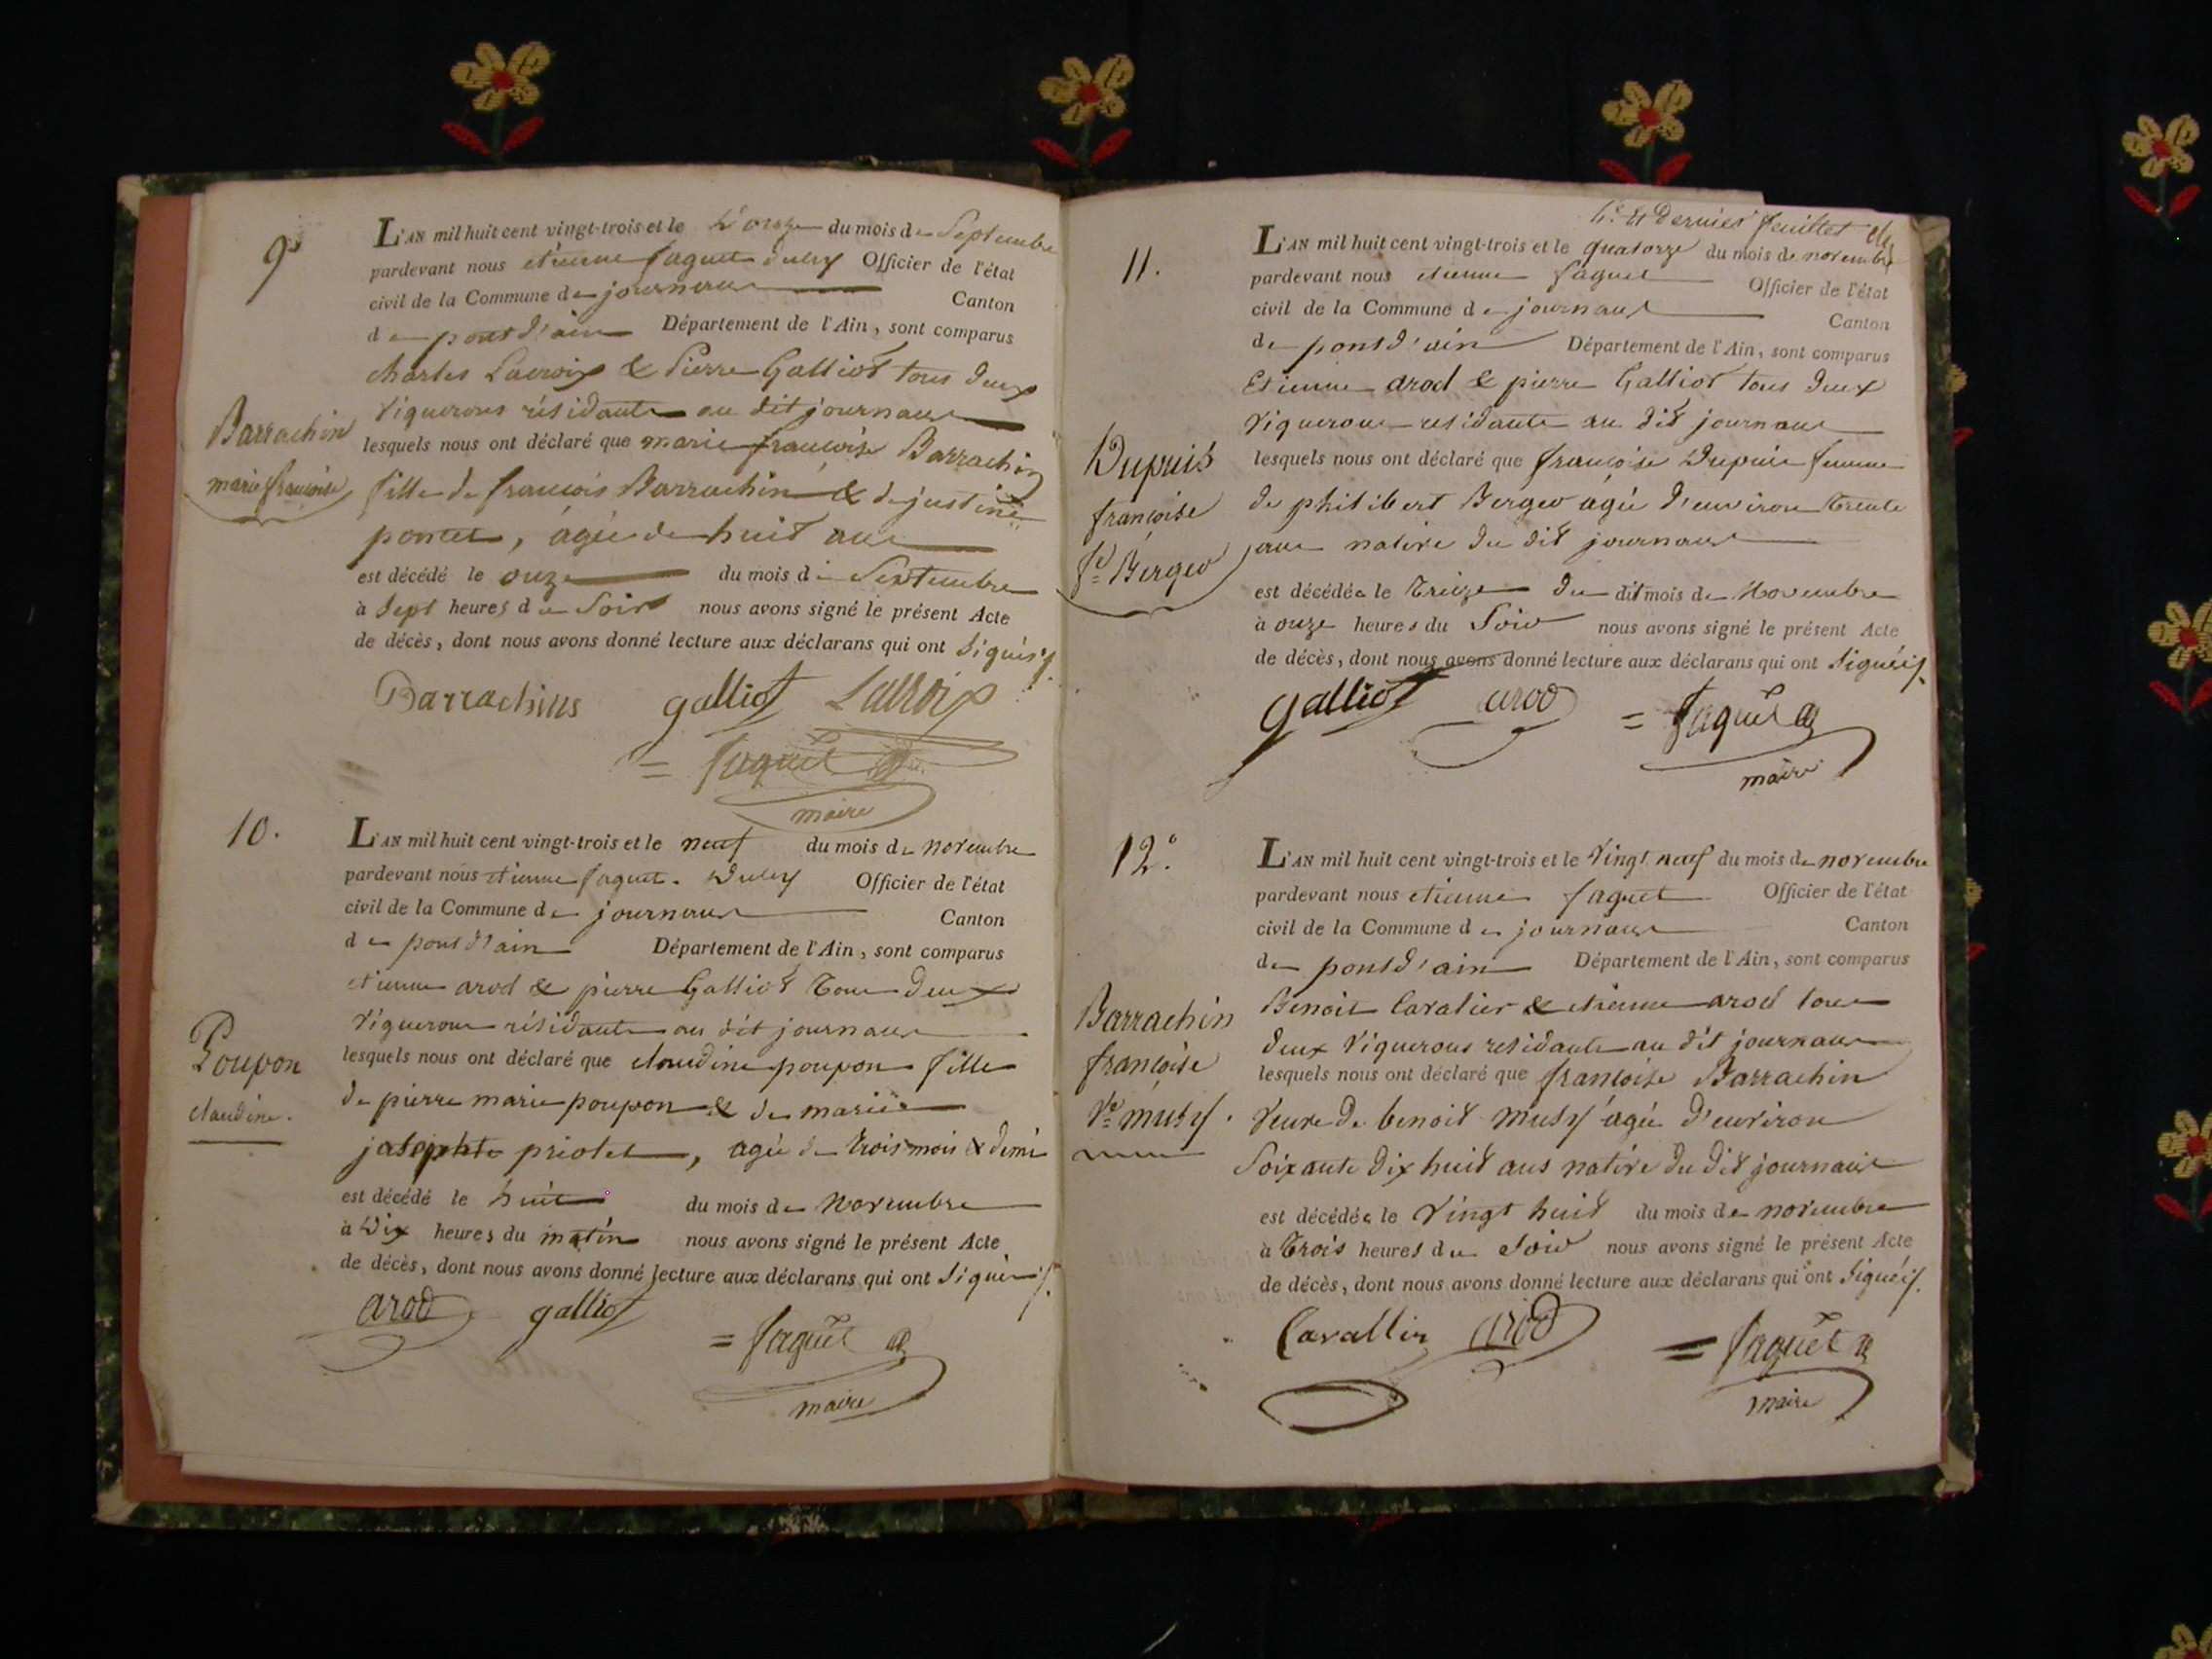 9e
L'AN mil huit cent vingt-trois et le douze du mois de Septembre
pardevant nous etienne faguet dubez Officier de l'état
civil de la Commune de journans Canton
de pont d'ain Département de l'Ain, sont comparus
charles Lacroix & Pierre Galliot tous deux
Vignerons résidants au dit journans
lesquels nous ont déclaré que marie françoise Barrachin
fille de françois Barrachin & de justine
poncet, agée de huit ans
est décédé le onze du mois de Septembre
à Sept heures du Soir nous avons signé le présent Acte
de décès, dont nous avons donné lecture aux déclarans qui ont Signés
Barrachin
marie françoise
Barrachins galliot Lacroix
= faguet
maire
10.
L'AN mil huit cent vingt-trois et le neuf du mois de novembre
pardevant nous etienne faguet. Officier de l'état
civil de la Commune de journans Canton
de pont d'ain Département de l'Ain, sont comparus
etienne arod & pierre Galliot Tous deux
Vignerons résidants au dit journans
lesquels nous ont déclaré que claudine poupon fille
de pierre marie poupon & de marie
josephte priolet, agée de trois mois & demi
est décédé le huit du mois de Novembre
à Dix heures du matin nous avons signé le présent Acte
de décès, dont nous avons donné lecture aux déclarans qui ont Signés
Poupon
claudine.
arod galliot
= faguet
maire
4e & Dernier feuillet
11.
L'AN mil huit cent vingt-trois et le quatorze du mois de novembre
pardevant nous etienne faguet Officier de l'état
civil de la Commune de journans Canton
de pont d'ain Département de l'Ain, sont comparus
Etienne arod & pierre Galliot tous deux
Vignerons residants au dit journans
lesquels nous ont déclaré que françoise Dupuis femme
de philibert Berger agée d'environ trente
ans native du dit journans
est décédée le Treize du dit mois de Novembre
à onze heures du Soir nous avons signé le présent Acte
de décès, dont nous avons donné lecture aux déclarans qui ont Signés
Dupuis
françoise
fe Berger
galliot arod = faguet
maire
12e
L'AN mil huit cent vingt-trois et le Vingt neuf du mois de novembre
pardevant nous etienne faguet Officier de l'état
civil de la Commune de journans Canton
de pont d'ain Département de l'Ain, sont comparus
Benoit Cavalier & etienne arod tous
deux Vignerons residants au dit journans
lesquels nous ont déclaré que françoise Barrachin
Veuve de benoit musy agée d'environ
Soixante dix huit ans native du dit journans
est décédée le Vingt huit du mois de novembre
à Trois heures du Soir nous avons signé le présent Acte
de décès, dont nous avons donné lecture aux déclarans qui ont Signés
Barrachin
françoise
Ve musy.
Cavallin arod = faguet
maire